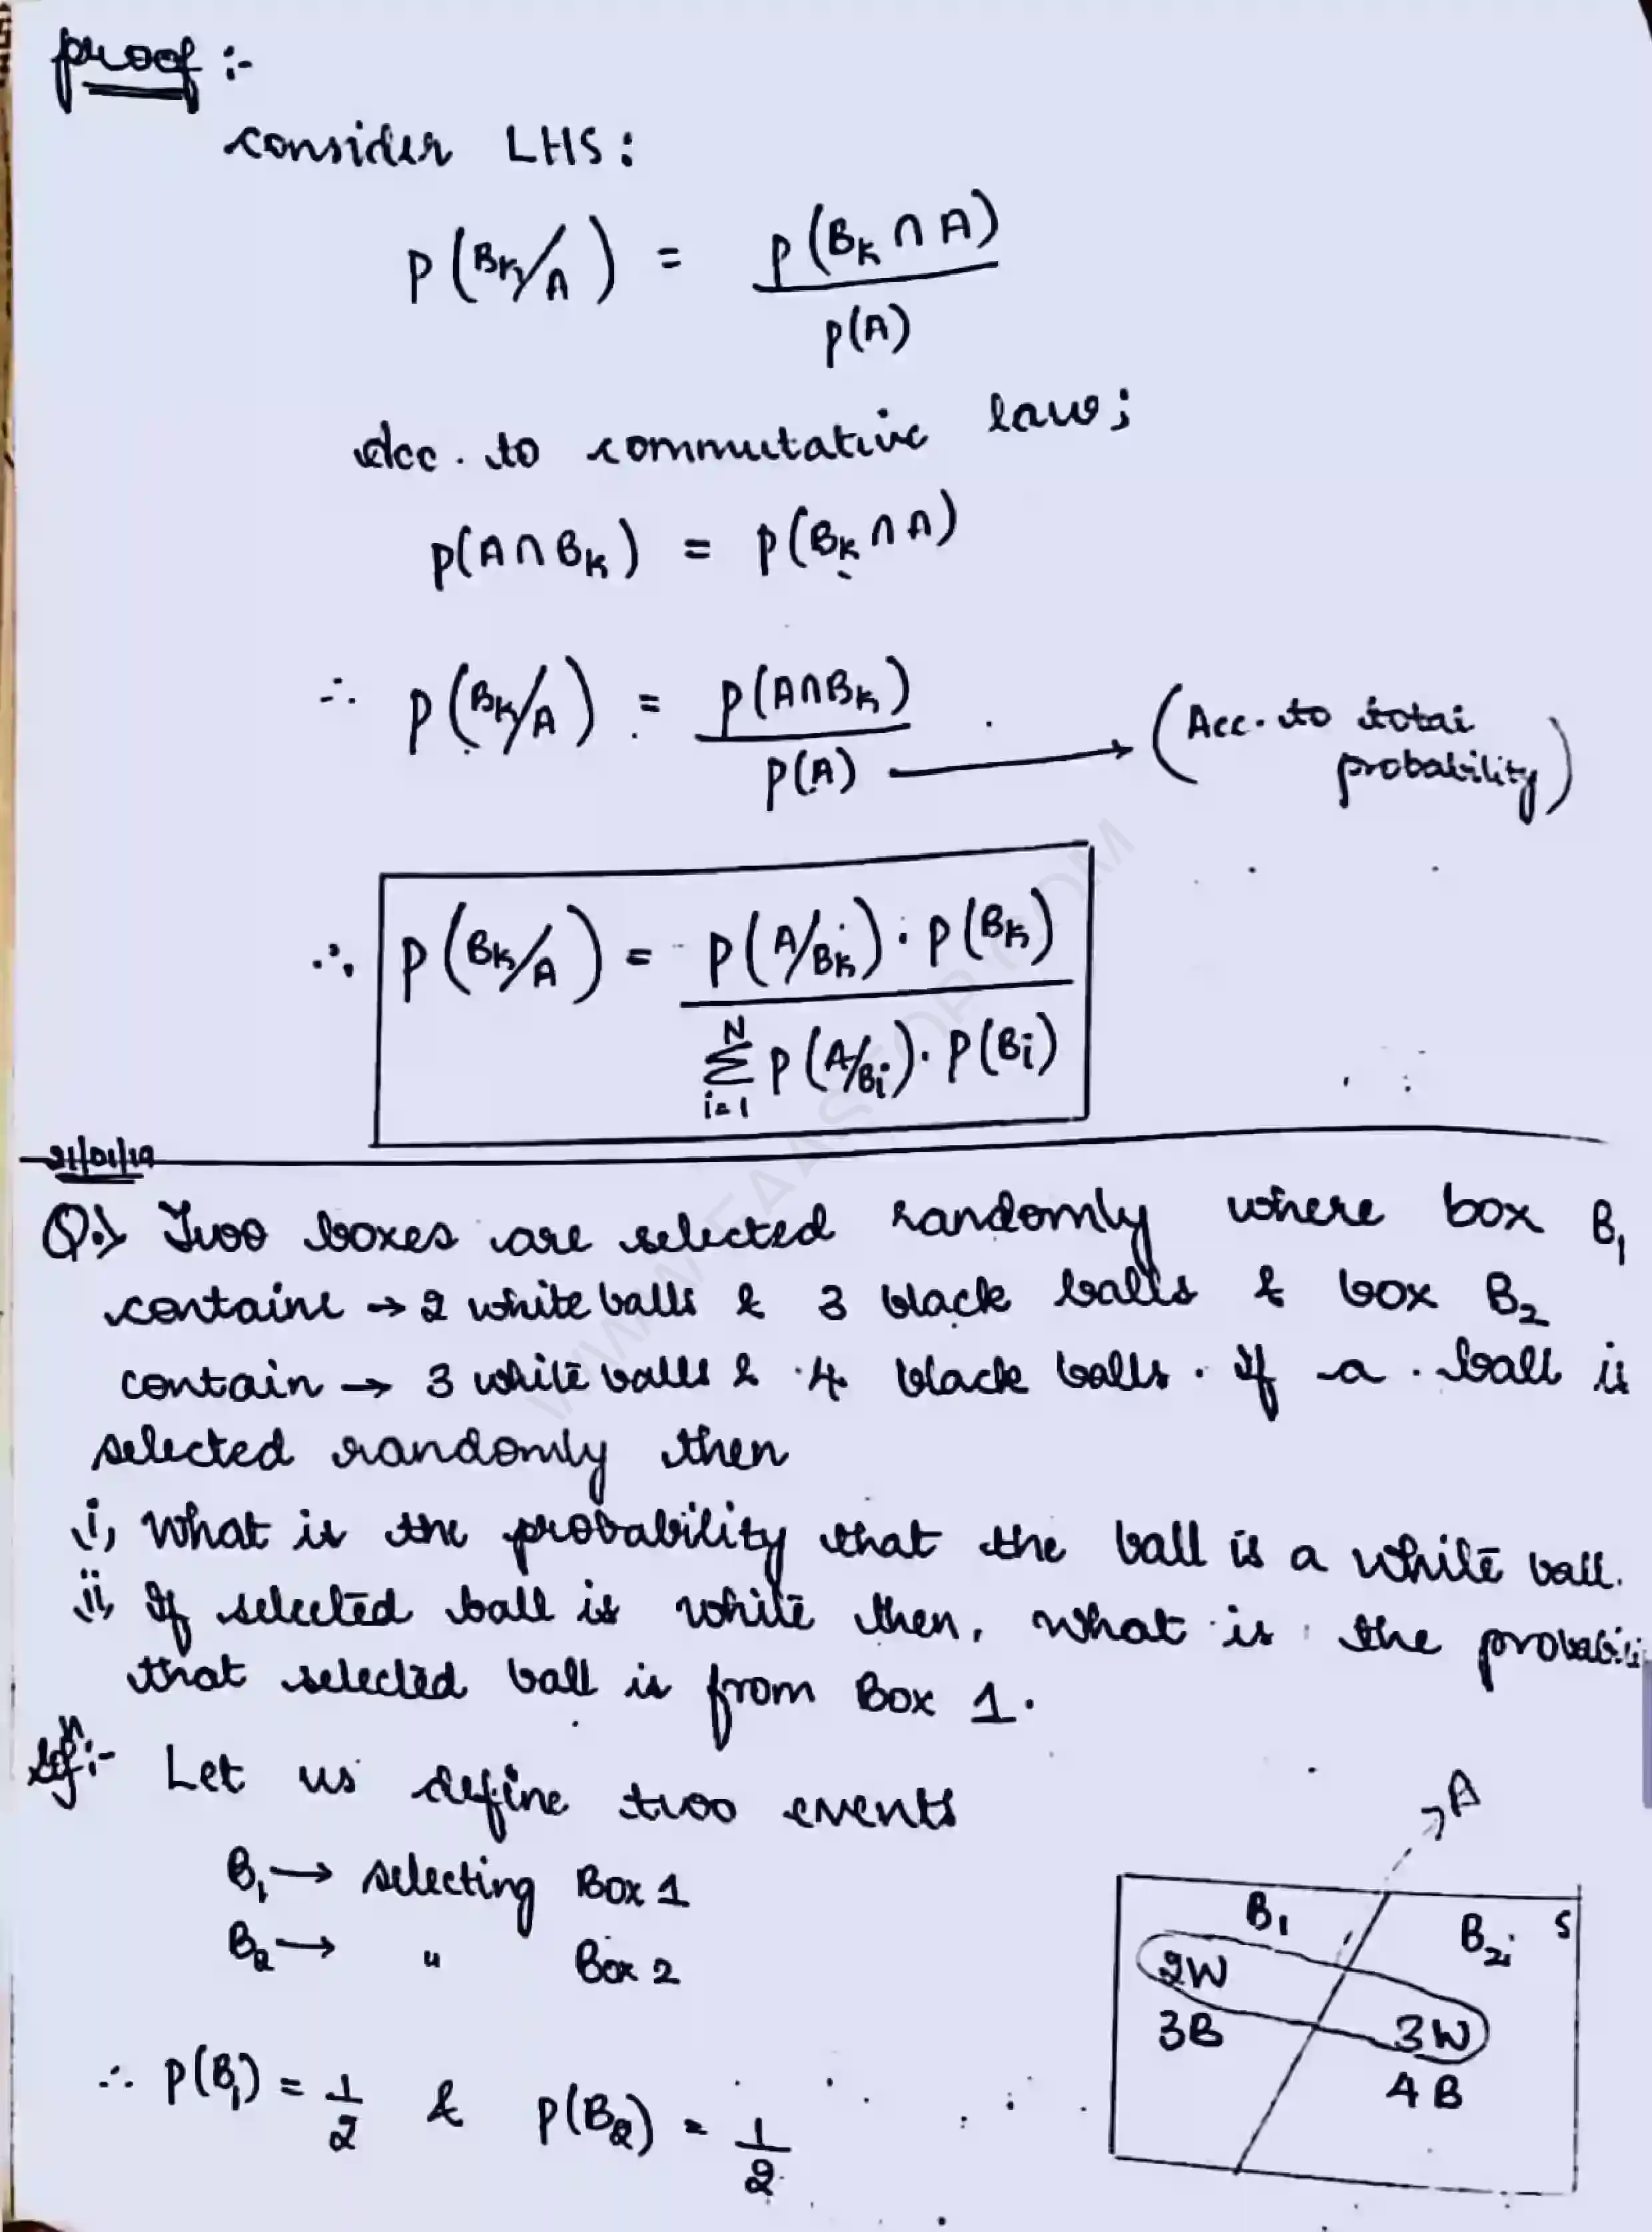 proof :-
consider LHS :
P(Bk/A) = P(Bk ∩ A) / P(A)
Acc. to commutative law ;
P(A ∩ Bk) = P(Bk ∩ A)
∴ P(Bk/A) = P(A∩Bk) / P(A) → (Acc. to total probability)
∴ P(Bk/A) = P(A/Bk) · P(Bk) / N Σ i=1 P(A/Bi) · P(Bi)
21/01/19
Q.) Two boxes are selected randomly where box B1
contains → 2 white balls & 3 black balls & box B2
contain → 3 white balls & 4 black balls. If a ball is
selected randomly then
i, What is the probability that the ball is a white ball.
ii, If selected ball is white then, what is the probabili
that selected ball is from Box 1.
Sol^n:- Let us define two events
B1 → selecting Box 1
B2 → " Box 2
∴ P(B1) = 1/2 & P(B2) = 1/2
A
B1 B2 S
2W
3B 3W
4B